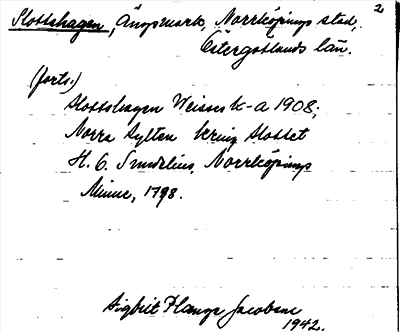 2
Slottshagen, Ängsmark, Norrköpings stad,
Östergötlands län.
(forts.)
Slottshagen Weisses k-a 1908;
Norra Sylten kring Slottet
H. O. Sundelius, Norrköpings
Minne, 1798.
Sigbrit Plange Jacobson
1942.